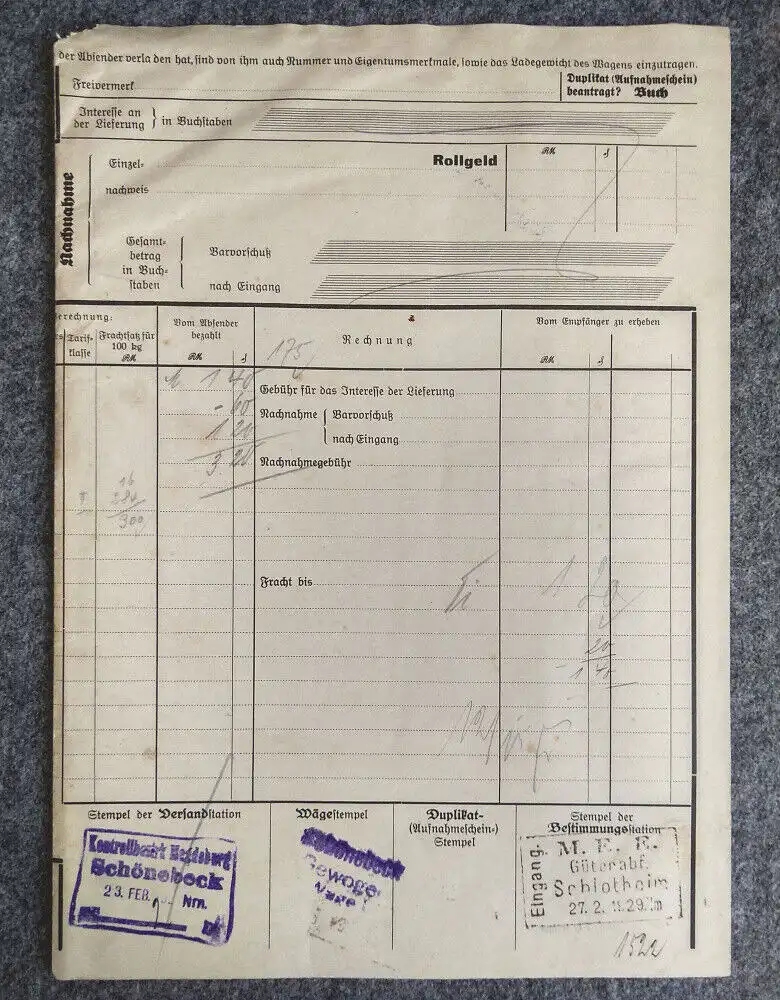 der Absender verladen hat, sind von ihm auch Nummer und Eigentumsmerkmale, sowie das Ladegewicht des Wagens einzutragen.
Freivermerk
Duplikat (Aufnahmeschein)
beantragt?
Interesse an
der Lieferung } in Buchstaben
Nachnahme
Einzel-
nachweis
Rollgeld
RM
₰
Gesamt-
betrag
in Buch-
staben
Barvorschuß
nach Eingang
erechnung:
Tarif-
klasse
Frachtsatz für
100 kg
RM
Vom Absender
bezahlt
RM
₰
Rechnung
Vom Empfänger zu erheben
RM
₰
175
1 40
- 60
1 20
3 20
Gebühr für das Interesse der Lieferung
Nachnahme { Barvorschuß
nach Eingang
Nachnahmegebühr
16
284
300
Fracht bis
1 20
20
1 40
Stempel der Versandstation
Wägestempel
Duplikat-
(Aufnahmeschein-)
Stempel
Stempel der
Bestimmungsstation
Kontrollbezirk Magdeburg
Schönebeck
23. FEB.
Nm.
Schönebeck
Gewogen
Eingang.
M. E. E.
Güterabf.
Schlotheim
27. 2. 1929
1522